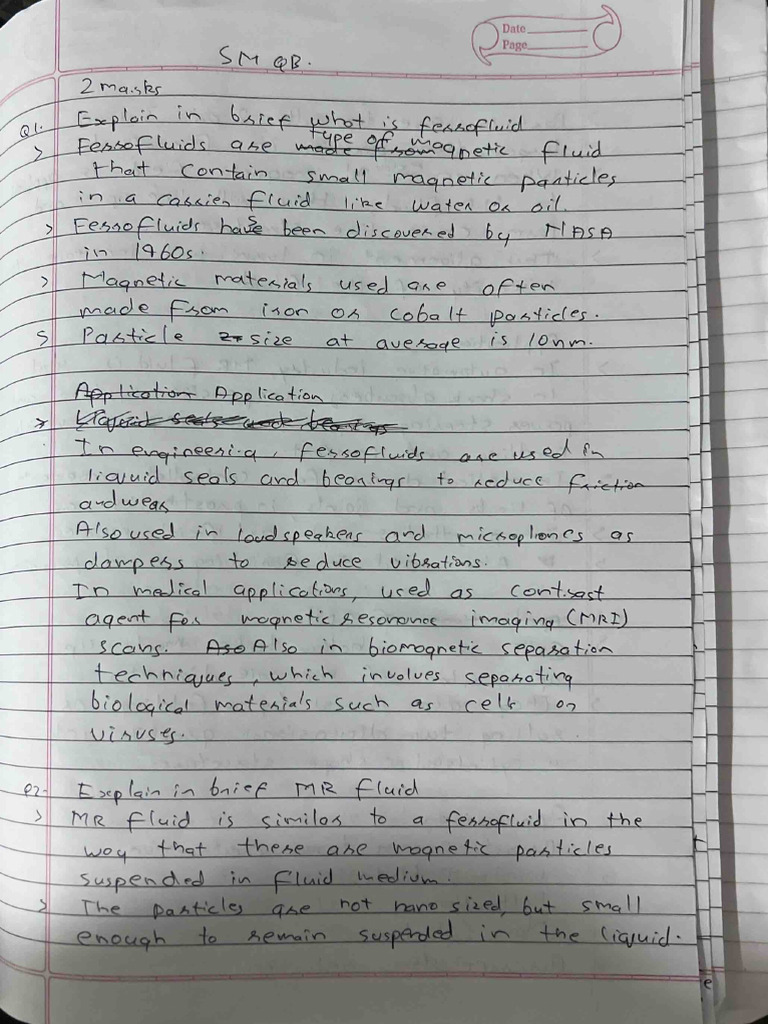 Date
Page
SM QB.
2 marks
Q1. Explain in brief what is ferrofluid
> Ferrofluids are made from type of magnetic fluid
that contain small magnetic particles
in a carrier fluid like water or oil.
> Ferrofluids has been discovered by NASA
in 1960s.
> Magnetic materials used are often
made from iron or cobalt particles.
> Particle size at average is 10nm.
Application Application
> Liquid seals and bearings
In engineering, ferrofluids are used in
liquid seals and bearings to reduce friction
and wear
Also used in loudspeakers and microphones as
dampers to reduce vibrations.
In medical applications, used as contrast
agent for magnetic resonance imaging (MRI)
scans. Aso Also in biomagnetic separation
techniques, which involves separating
biological materials such as cells or
viruses.
Q2. Explain in brief MR fluid
> MR fluid is similar to a ferrofluid in the
way that there are magnetic particles
suspended in fluid medium.
> The particles are not nano sized, but small
enough to remain suspended in the liquid.
e